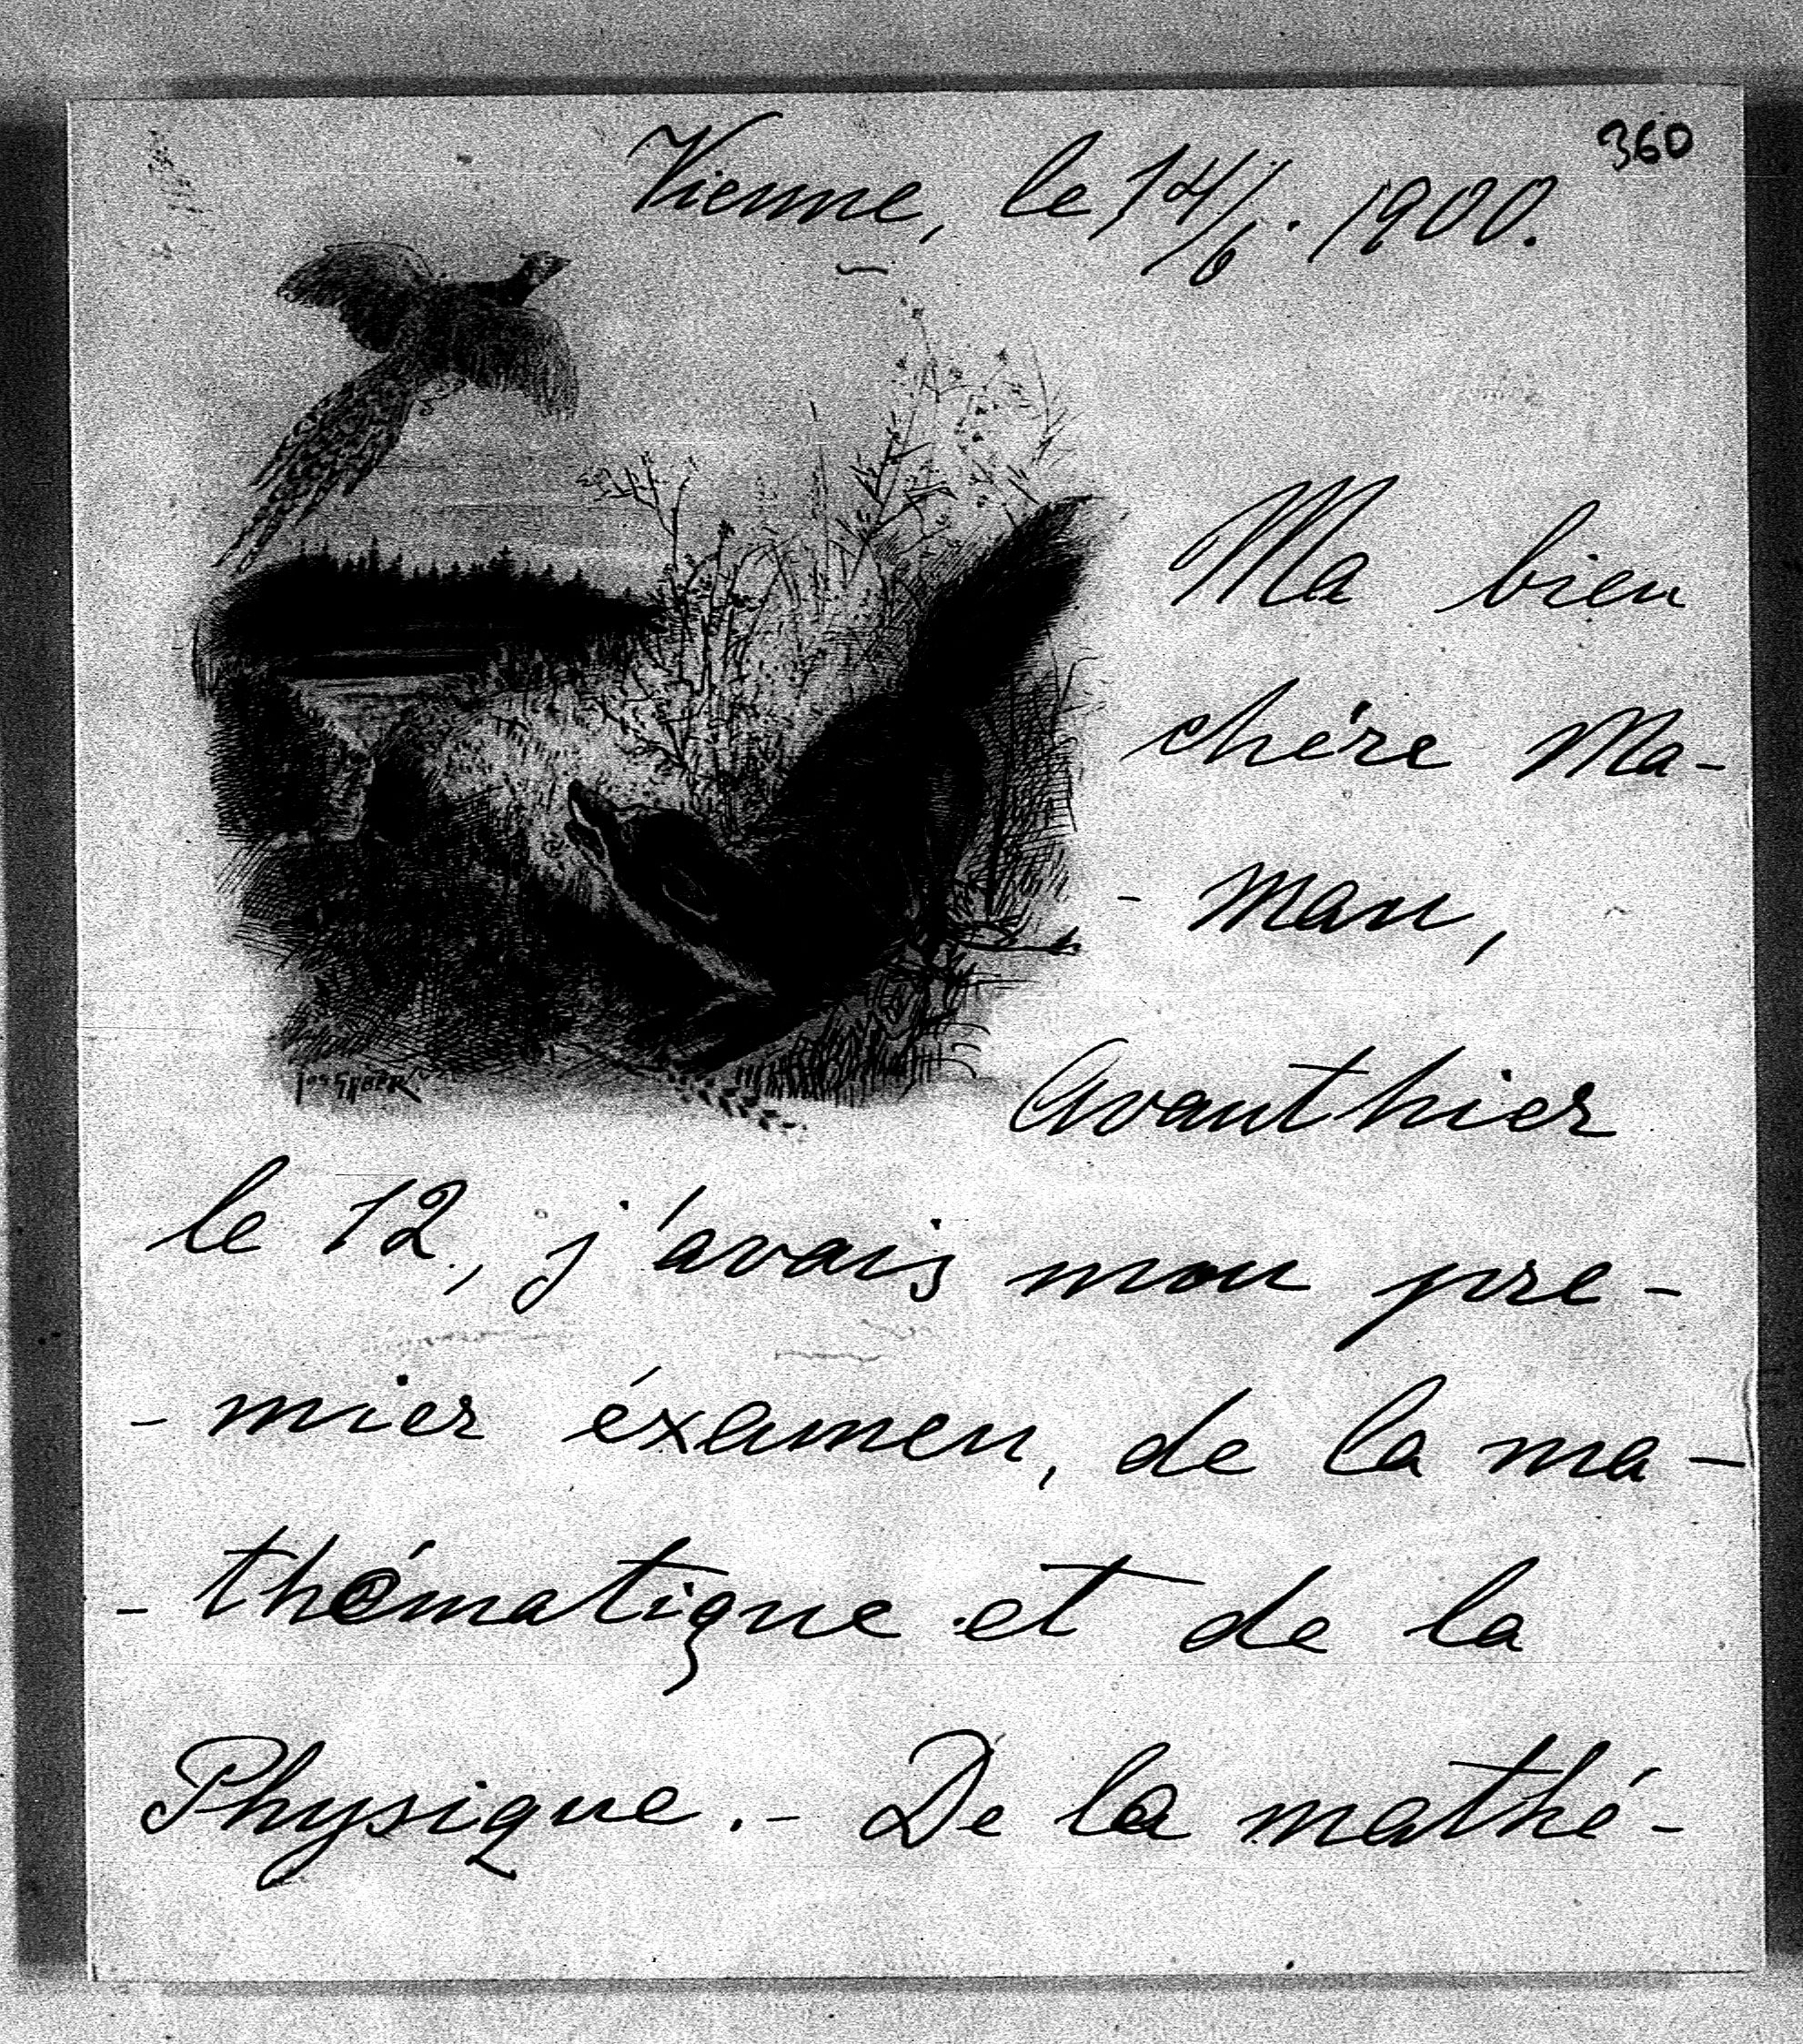 360
Vienne, le 14/6. 1900.
Ma bien
chére Ma-
- man,
Avanthier
le 12, j'avais mon pre-
- mier éxamen, de la ma-
- thématique et de la
Physique. - De la mathé-